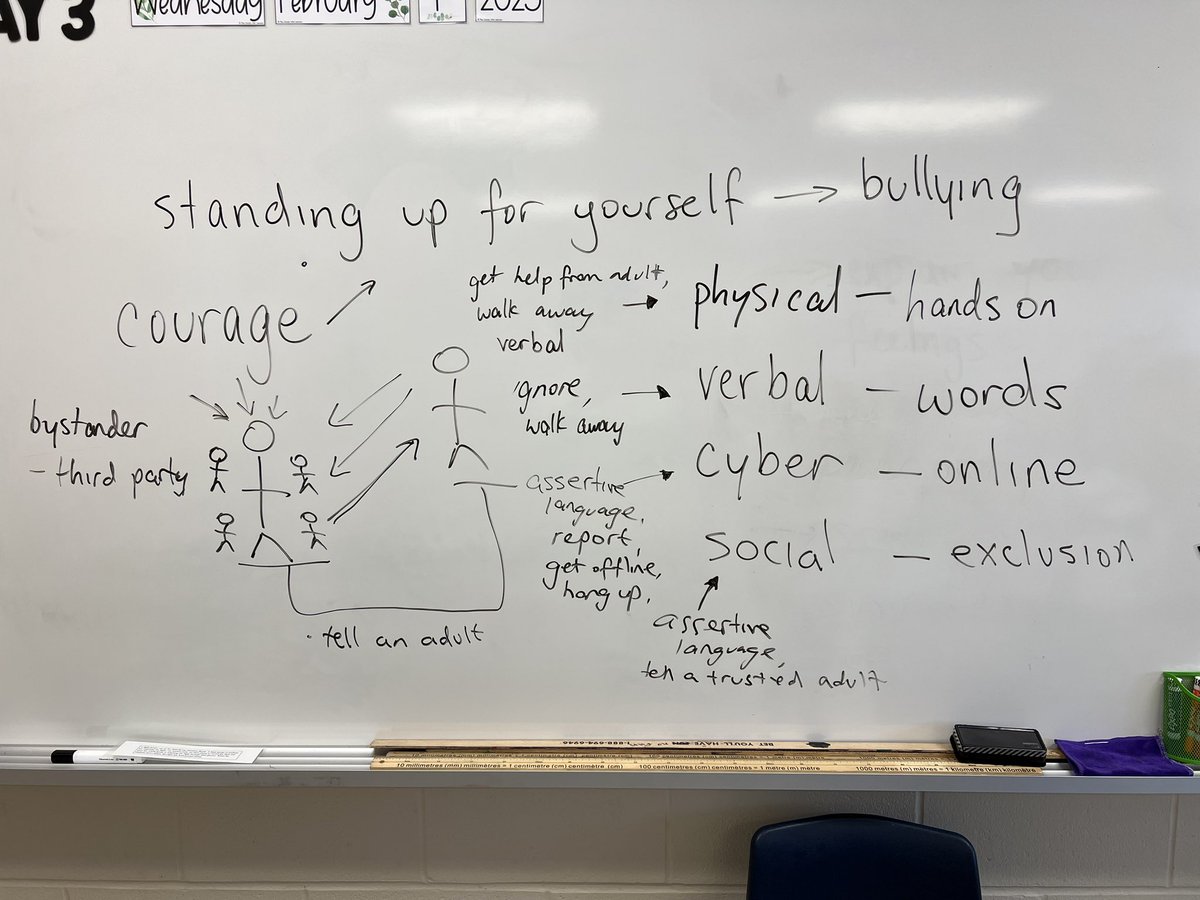 AY 3
Wednesday February 1 2023
standing up for yourself → bullying
courage
get help from adult,
walk away
verbal
physical — hands on
ignore,
walk away
verbal — words
bystander
- third party
assertive
language,
report,
get offline,
hang up.
cyber — online
social — exclusion
assertive
language,
tell a trusted adult
· tell an adult
BET YOU'LL HAVE FUN
10 millimetres (mm) millimètres = 1 centimetre (cm) centimètre (cm)
100 centimetres (cm) centimètres = 1 metre (m) mètre (m)
1000 metres (m) mètres = 1 kilometre (km) kilomètre (km)